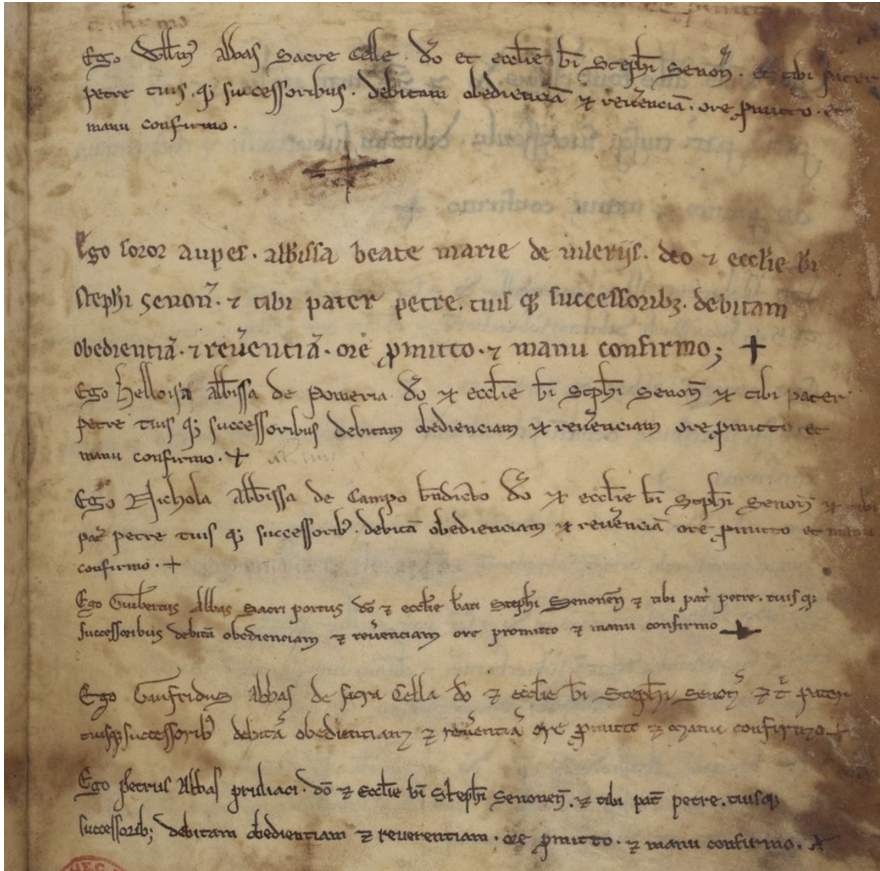 Ego Willms abbas Sacre Celle. dō et eccłie bī Stephi Senoñ. et tibi pater
petre tuis. q; successoribus. debitam obedienciā ⁊ reu̅enciā. ore pmitto. et
manu confirmo.
Ego soror aupes. abbissa beate marie de uilerijs. deo ⁊ eccłie bī
stephi senoñ. ⁊ tibi pater petre. tuis q; successorib;. debitam
obedientiā. ⁊ reu̅entiā. ore pmitto. ⁊ manu confirmo; +
Ego helloisa abbissa de Poweria dō ⁊ eccłie bī Stephi Senoñ ⁊ tibi pater
petre tuis q; successoribus debitam obedienciam ⁊ reu̅enciam ore pmitto et
manu confirmo. +
Ego Nichola abbissa de Campo bndicto dō ⁊ eccłie bī Stephi Senoñ ⁊ tibi
pat̄ petre tuis q; successorib̄. debitā obedienciam ⁊ reu̅enciā ore pmitto et manu
confirmo. +
Ego Guibertus Abbas Sacri portus dō ⁊ eccłie bati Stephi Senonen̄ ⁊ tibi pat̄ petre. tuis q;
successoribus debitā obedienciam ⁊ reu̅enciam ore promitto ⁊ manu confirmo +
Ego Gaufridus Abbas de sacra Cella dō ⁊ eccłie bī Stephi Senoñ ⁊ t̄ pater
tuisq; successorib̄ debitā obedientiam ⁊ reu̅entiā ore pmitto ⁊ manu confirmo +
Ego petrus Abbas pruliaci. dō ⁊ Eccłie bī Stephi Senonen̄. ⁊ tibi pat̄ petre. tuisq;
successorib; debitam obedientiam ⁊ reuerentiam. ore pmitto. ⁊ manu confirmo. +